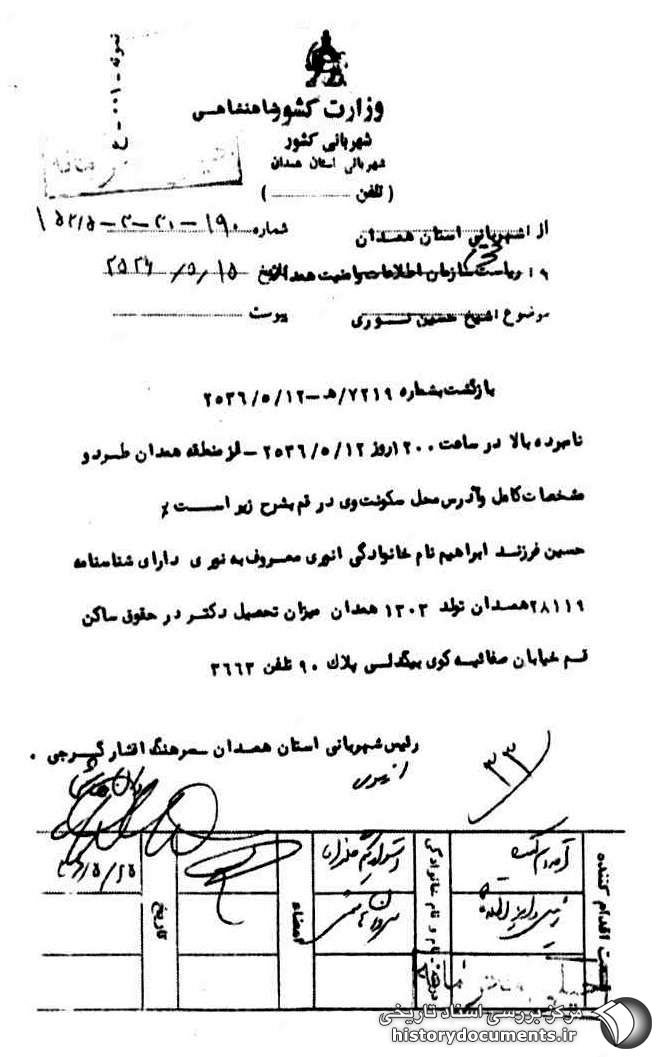 نمونه - ۰۰۱ - ع
وزارت کشور شاهنشاهی
شهربانی کشور
شهربانی استان همدان
( تلفن ............ )
از : شهربانی استان همدان
شماره ۱۹۰ - ۳۱ - ۳ - ۵۲/۵
ریاست سازمان اطلاعات و امنیت همدان
تاریخ ۱۵ / ۵ / ۲۵۳۶
موضوع : شیخ حسین نوری
پیوست
بازگشت بشماره ۷۲۱۹/هـ - ۲۵۳۶/۵/۱۲
نامبرده بالا در ساعت ۱۲۰۰ روز ۲۵۳۶/۵/۱۲ - از منطقه همدان طرد و
مشخصات کامل و آدرس محل سکونت وی در قم بشرح زیر است ٪
حسین فرزند ابراهیم نام خانوادگی انوری معروف به نوری دارای شناسنامه
۲۸۱۱۹ همدان تولد ۱۳۰۳ همدان میزان تحصیل دکتر در حقوق ساکن
قم خیابان صفائیه کوی بیگدلی پلاک ۹۰ تلفن ۳۶۶۳
رئیس شهربانی استان همدان - سرهنگ افشار گرجی .
انوری
۳۳
اقدام کننده
نام و نام خانوادگی
امضاء
تاریخ
مرکز بررسی اسناد تاریخی
historydocuments.ir